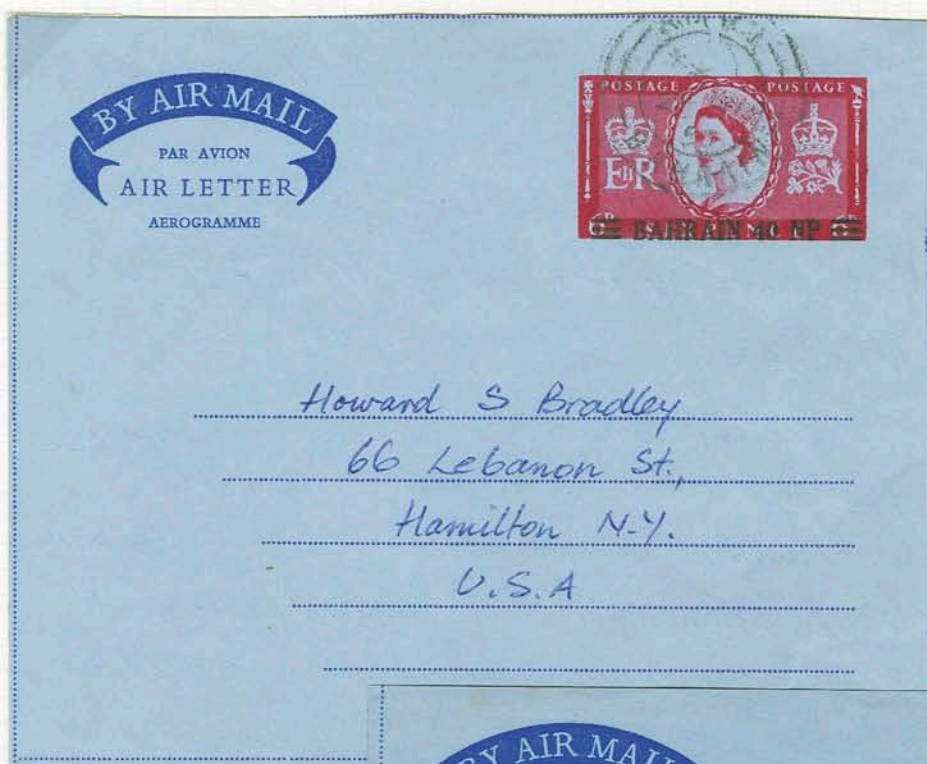 BY AIR MAIL
PAR AVION
AIR LETTER
AEROGRAMME
POSTAGE POSTAGE
EIIR
BAHRAIN 40 NP
Howard S Bradley
66 Lebanon St.,
Hamilton N-Y.
U.S.A
BY AIR MAIL